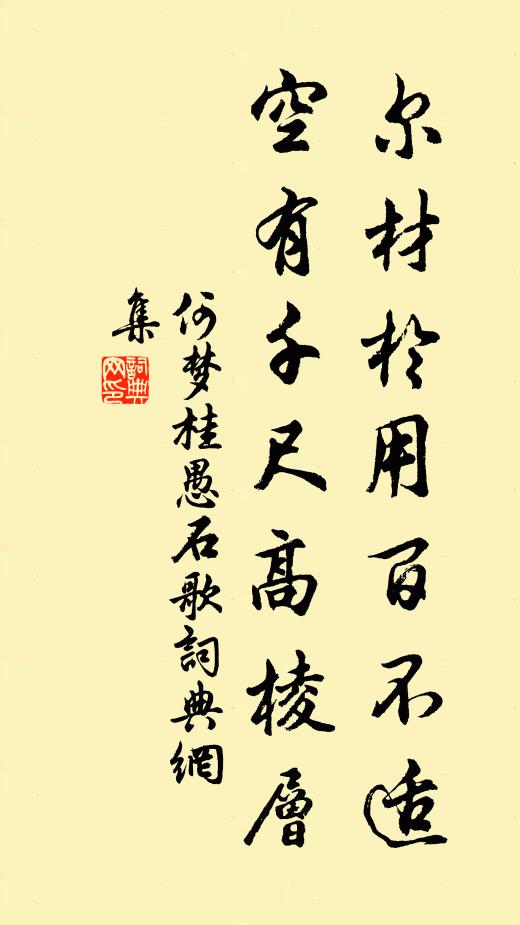 尔材於用百不适
空有千尺高棱層
何梦桂愚石歌詞典網
集
詞典
网印